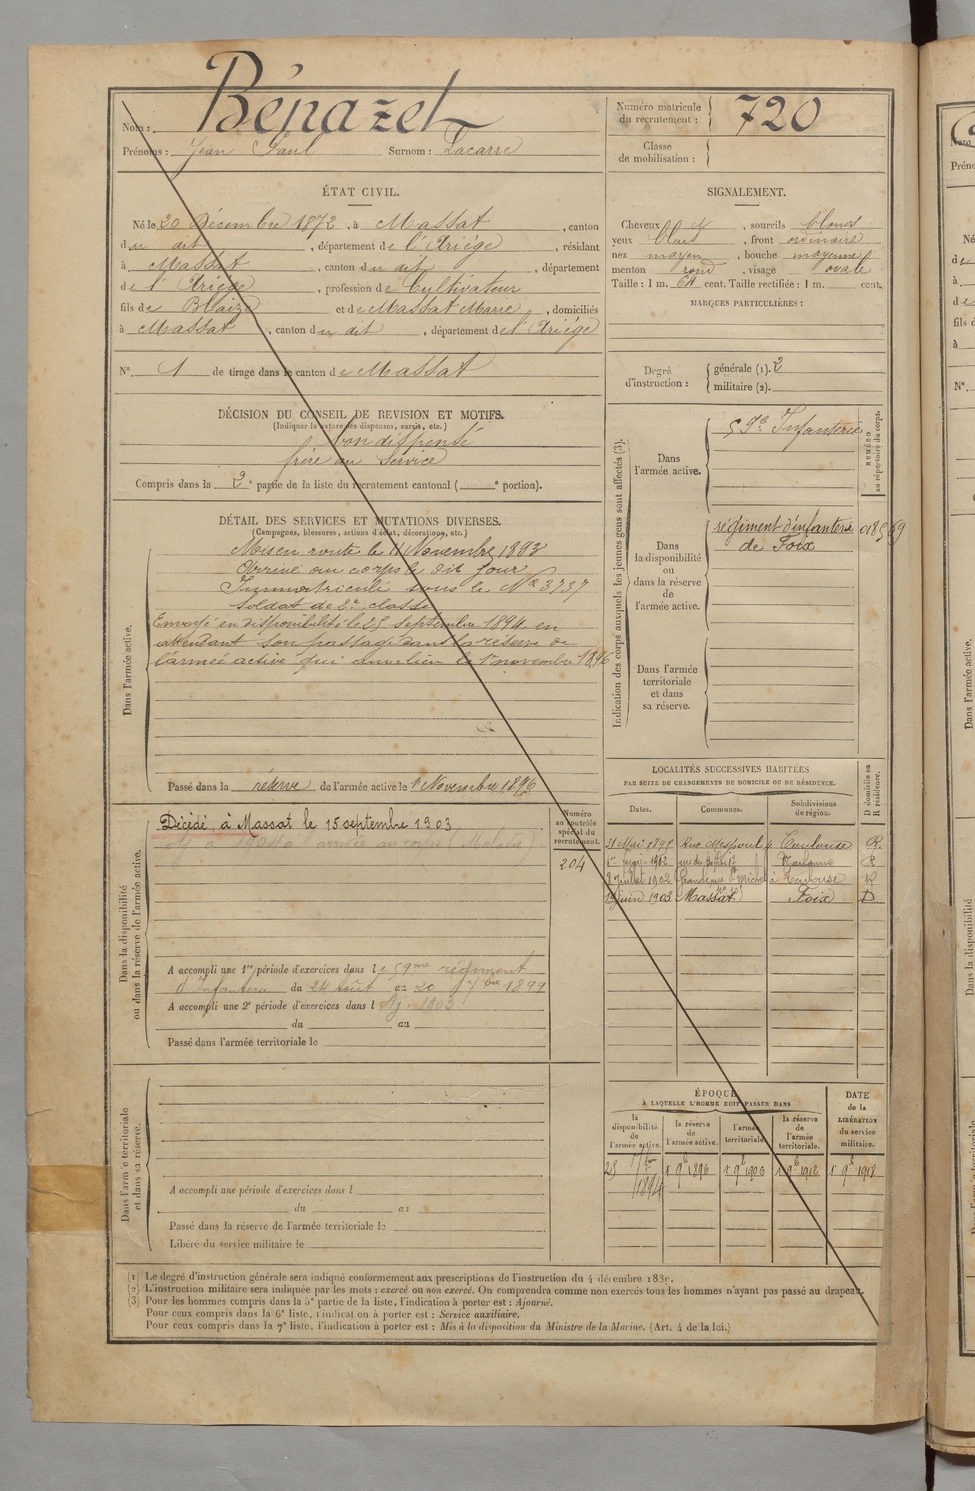 Nom : Bénazet
Prénoms : Jean Paul Surnom : Lacarre
Numéro matricule du recrutement : 720
Classe de mobilisation :
ÉTAT CIVIL.
Né le 20 Décembre 1872, à Massat, canton
du dit, département de l'Ariège, résidant
à Massat, canton du dit, département
de l'Ariège, profession de Cultivateur
fils de Blaize et de Massat Marie, domiciliés
à Massat, canton du dit, département de l'Ariège
N° 1 de tirage dans le canton de Massat
SIGNALEMENT.
Cheveux, sourcils blonds
yeux bleus, front ordinaire
nez moyen, bouche moyenne
menton rond, visage ovale
Taille : 1 m. 64 cent. Taille rectifiée : 1 m. cent.
MARQUES PARTICULIÈRES :
Degré d'instruction :
générale (1). 2
militaire (2).
DÉCISION DU CONSEIL DE REVISION ET MOTIFS.
(Indiquer la nature des dispenses, sursis, etc.)
bon dispensé
frère au service
Compris dans la 2e partie de la liste du recrutement cantonal ( e portion).
DÉTAIL DES SERVICES ET MUTATIONS DIVERSES.
(Campagnes, blessures, actions d'éclat, décorations, etc.)
Dans l'armée active.
Mis en route le 11 Novembre 1893
Arrivé au corps le dit jour
Immatriculé sous le N° 3737
soldat de 2e classe
Envoyé en disponibilité le 25 septembre 1894 en
attendant son passage dans la réserve de
l'armée active qui aura lieu le 1er novembre 1896
Passé dans la réserve de l'armée active le 1er Novembre 1896
Indication des corps auxquels les jeunes gens sont affectés (3).
NUMÉRO au répertoire du corps.
Dans l'armée active.
59e Infanterie
Dans la disponibilité ou dans la réserve de l'armée active.
régiment d'infanterie
de Foix
Dans l'armée territoriale et dans sa réserve.
Dans la disponibilité ou dans la réserve de l'armée active.
Numéro au contrôle spécial du recrutement.
204
Décédé, à Massat le 15 septembre 1903
A accompli une 1re période d'exercices dans le 59me régiment
d'Infanterie du 24 Août au 20 7bre 1899
A accompli une 2e période d'exercices dans l Aj. 1903
du au
Passé dans l'armée territoriale le
LOCALITÉS SUCCESSIVES HABITÉES
PAR SUITE DE CHANGEMENTS DE DOMICILE OU DE RÉSIDENCE.
Dates. Communes. Subdivisions de région. D domicile ou R résidence.
Toulouse R
1902 R
Juillet 1902 à Toulouse R
juin 1903 Massat Foix D
Dans l'armée territoriale et dans sa réserve.
A accompli une période d'exercices dans l
du au
Passé dans la réserve de l'armée territoriale le
Libéré du service militaire le
ÉPOQUE
À LAQUELLE L'HOMME DOIT PASSER DANS
la disponibilité de l'armée active.
la réserve de l'armée active.
l'armée territoriale.
la réserve de l'armée territoriale.
DATE de la LIBÉRATION du service militaire.
25 7bre 1894
1er 9b 1896
1er 9b 1906
1er 9b 1912
1er 9b 1918
(1) Le degré d'instruction générale sera indiqué conformément aux prescriptions de l'instruction du 4 décembre 1889.
(2) L'instruction militaire sera indiquée par les mots : exercé ou non exercé. On comprendra comme non exercés tous les hommes n'ayant pas passé au drapeau.
(3) Pour les hommes compris dans la 5e partie de la liste, l'indication à porter est : Ajourné.
Pour ceux compris dans la 6e liste, l'indication à porter est : Service auxiliaire.
Pour ceux compris dans la 7e liste, l'indication à porter est : Mis à la disposition du Ministre de la Marine. (Art. 4 de la loi.)